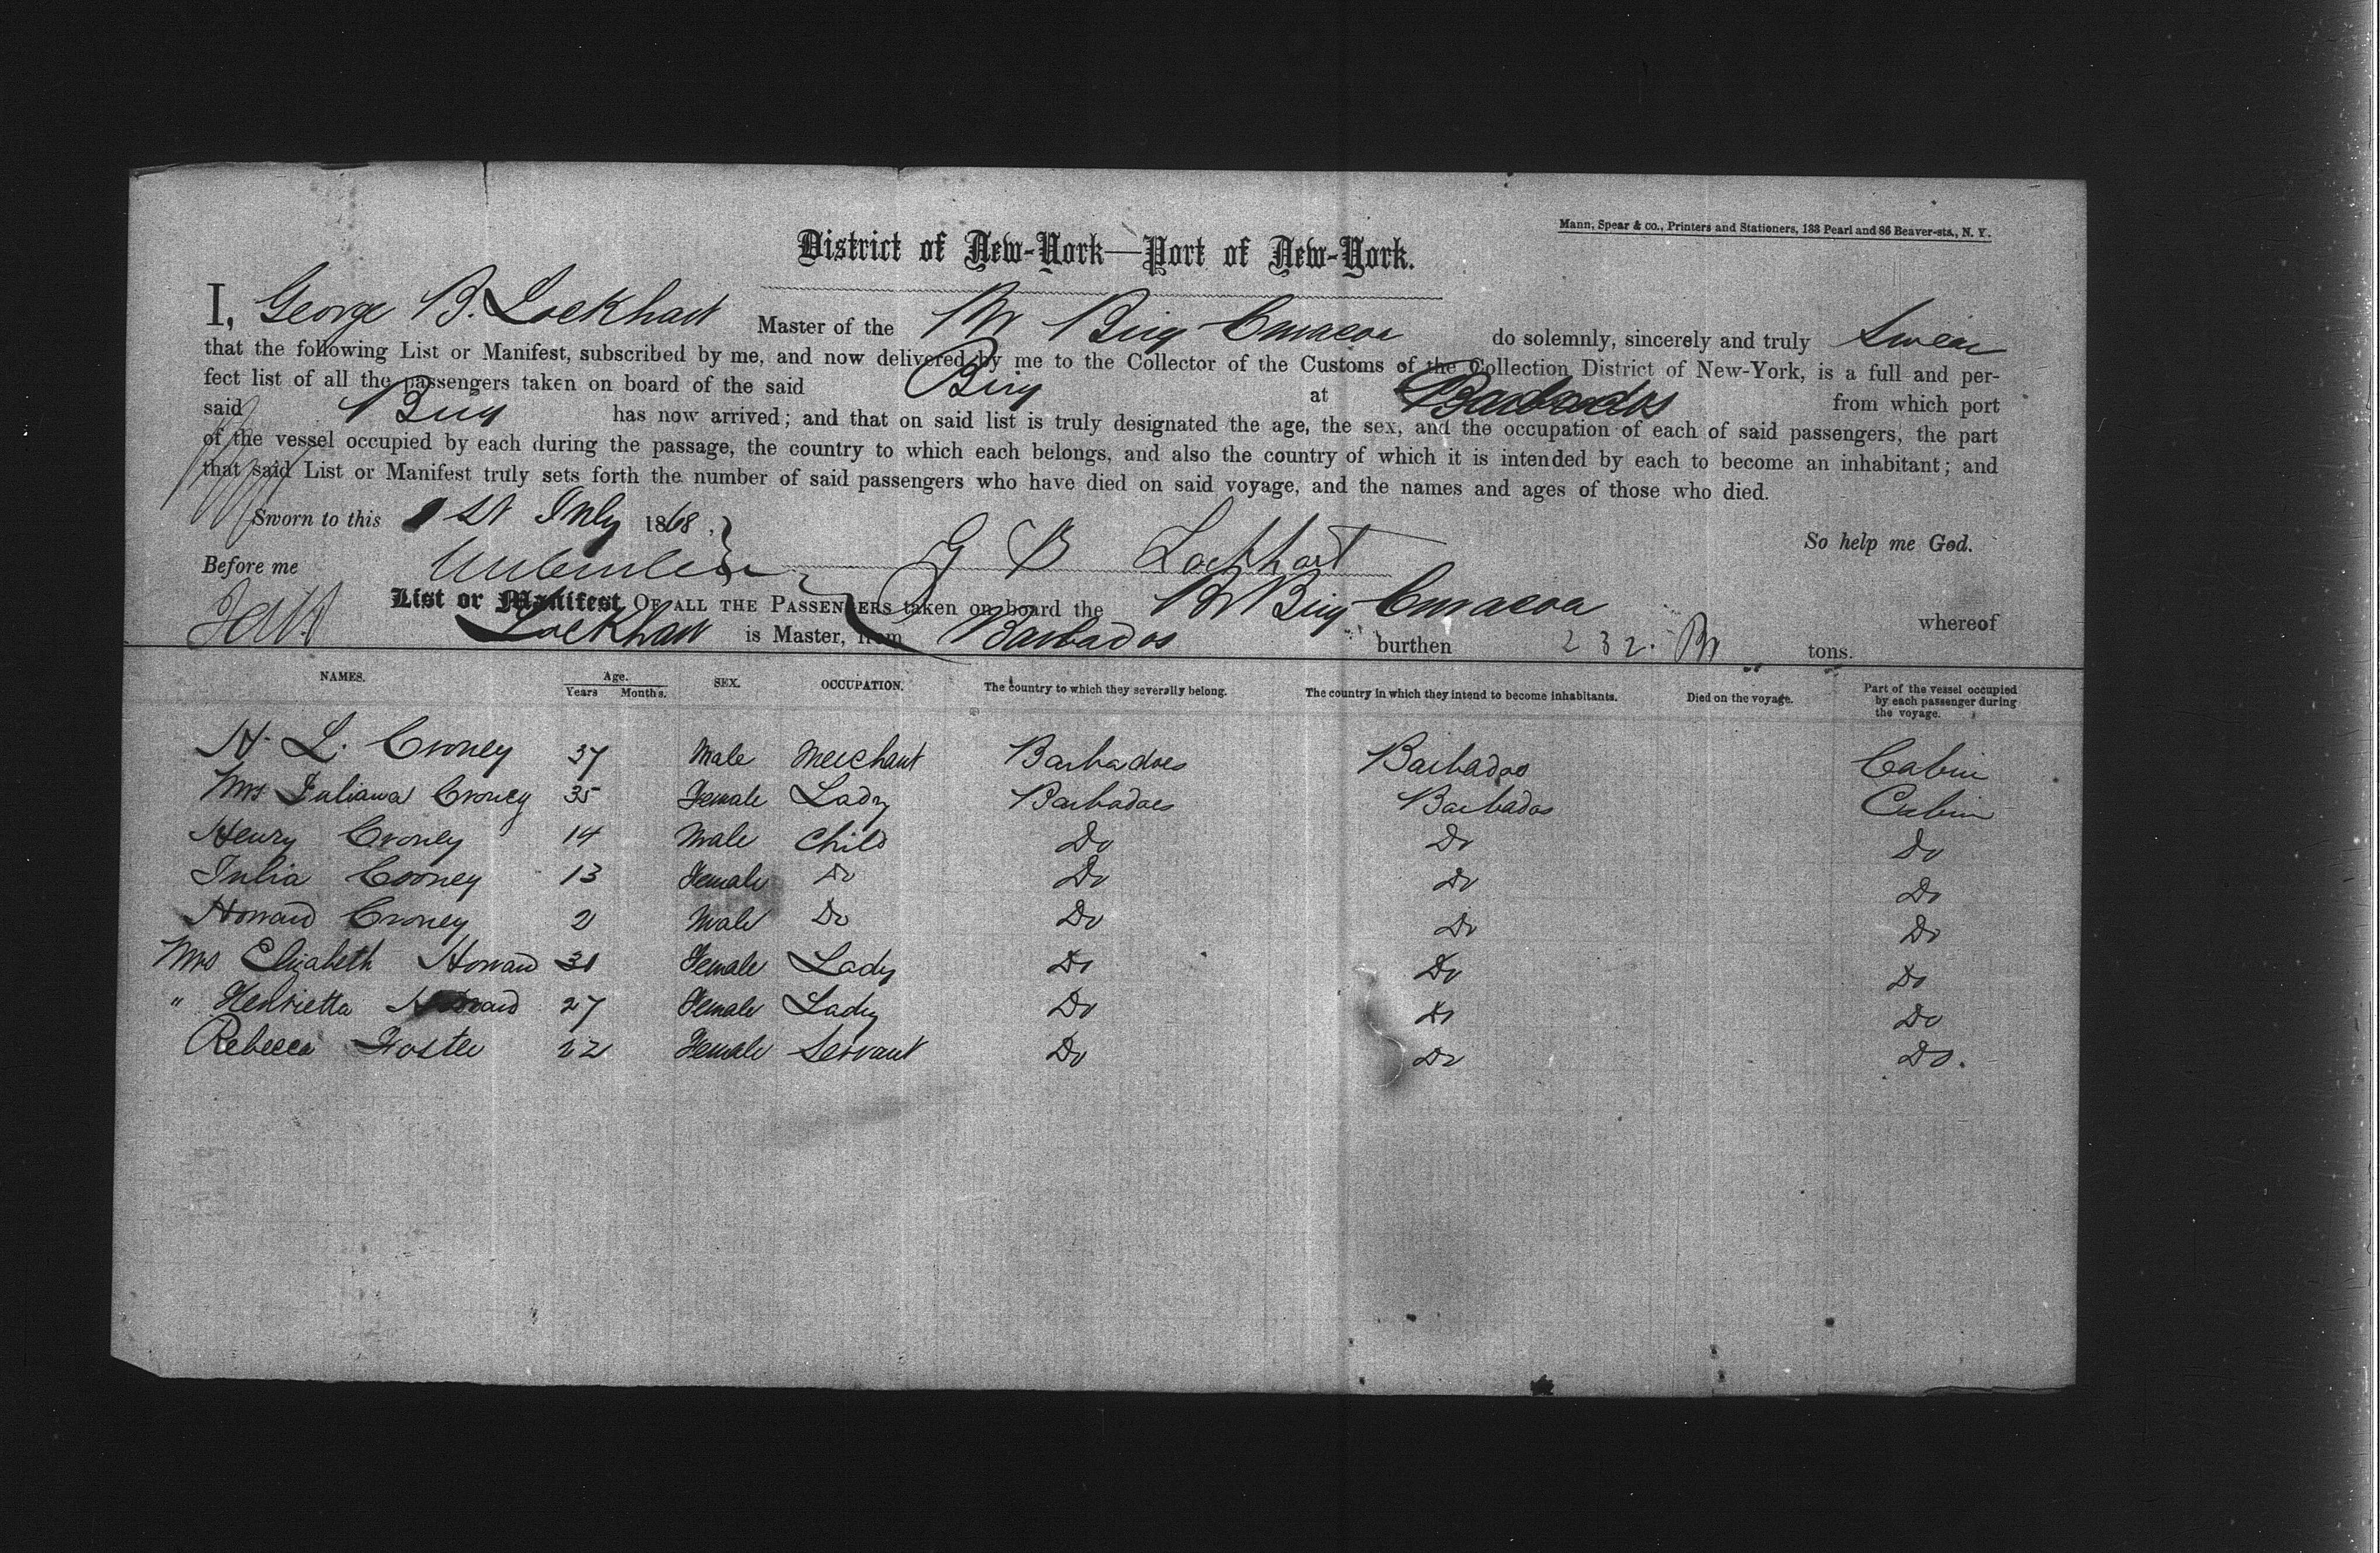 Mann, Spear & co., Printers and Stationers, 133 Pearl and 86 Beaver-sts., N. Y.
District of New-York—Port of New-York.
I, George B. Lockhart Master of the Br Brig Curacoa do solemnly, sincerely and truly Swear
that the following List or Manifest, subscribed by me, and now delivered by me to the Collector of the Customs of the Collection District of New-York, is a full and per-
fect list of all the passengers taken on board of the said Brig at Barbados from which port
said Brig has now arrived; and that on said list is truly designated the age, the sex, and the occupation of each of said passengers, the part
of the vessel occupied by each during the passage, the country to which each belongs, and also the country of which it is intended by each to become an inhabitant; and
that said List or Manifest truly sets forth the number of said passengers who have died on said voyage, and the names and ages of those who died.
Sworn to this 1st July 1868. So help me God.
Before me G B Lockhart
List or Manifest OF ALL THE PASSENGERS taken on board the Br Brig Curacoa whereof
Lockhart is Master, from Barbados burthen 232. Br tons.
NAMES. Age. Years Months. SEX. OCCUPATION. The country to which they severally belong. The country in which they intend to become inhabitants. Died on the voyage. Part of the vessel occupied by each passenger during the voyage.
H. L. Croney 37 Male Merchant Barbadoes Barbados Cabin
Mrs Juliana Croney 35 Female Lady Barbadoes Barbados Cabin
Henry Croney 14 Male Child Do Do Do
Julia Crooney 13 Female Do Do Do Do
Howard Croney 2 Male Do Do Do Do
Mrs Elizabeth Howard 31 Female Lady Do Do Do
" Henrietta Howard 27 Female Lady Do Do Do
Rebecca Foster 22 Female Servant Do Do Do.